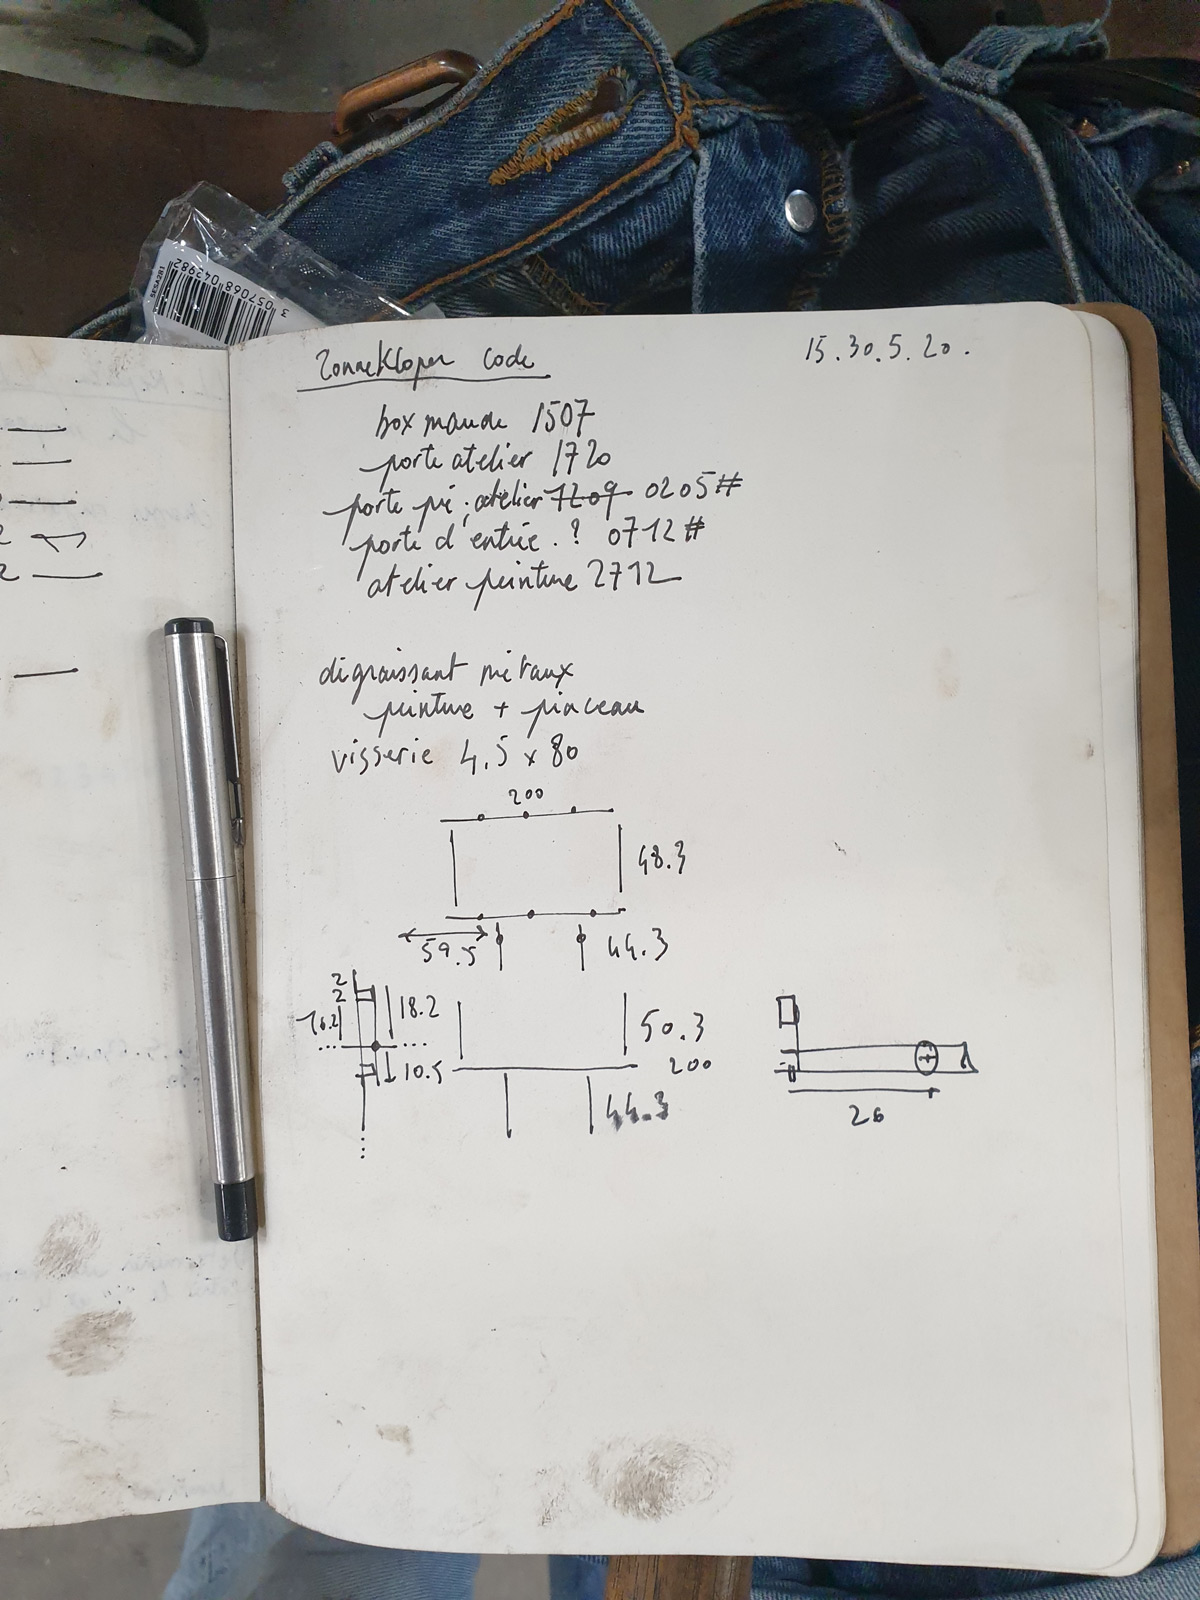 3 057068 042982
Zonnekloper code
15.30.5.20.
box maude 1507
porte atelier 1720
porte pré.atelier 1209 0205#
porte d'entrée.? 0712#
atelier peinture 2712
dégraissant métaux
peinture + pinceau
visserie 4,5 x 80
200
48.3
59.5
44.3
2
2
18.2
50.3
10.5
200
44.3
26